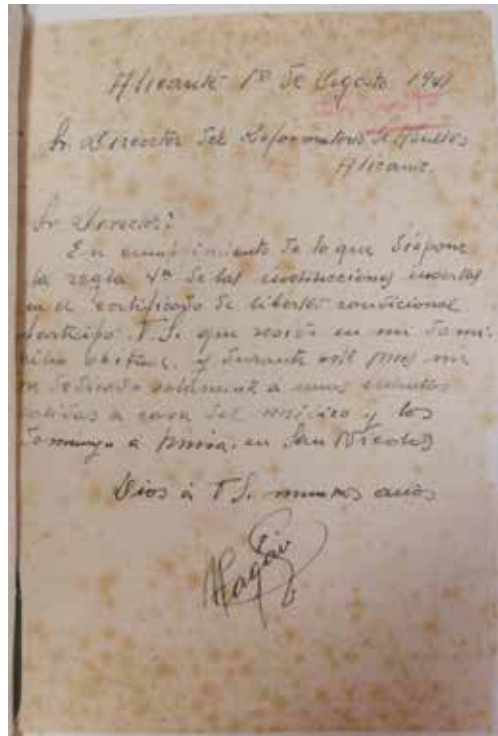 Alicante 1º de Agosto 1941
Sr. Director del Reformatorio de Adultos
Alicante.
Sr Director:
En cumplimiento de lo que dispone
la regla 4ª de las instrucciones insertas
en el certificado de libertad condicional
participo V.S. que resido en mi domi-
cilio y durante este mes me
he dedicado solamente a unas
salidas a casa del médico y los
Domingo a Misa. en San Nicolas
Dios á V.S. muchos años